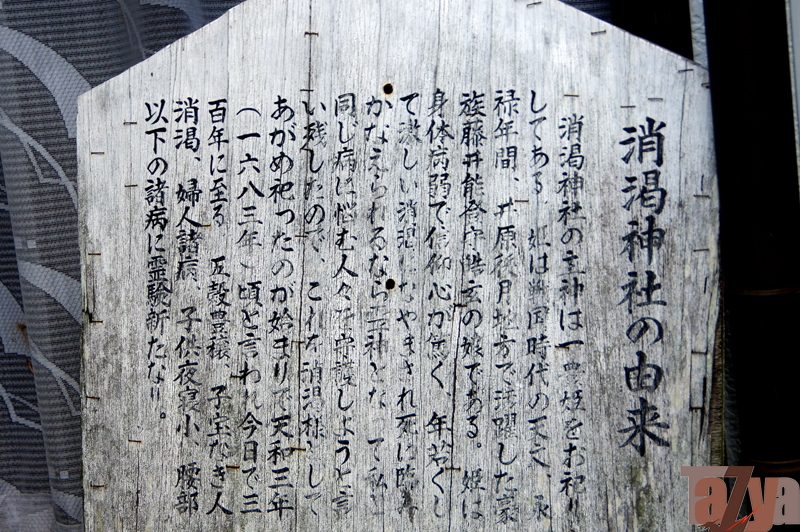 消渇神社の由来
消渇神社の主神は一豊姫をお祀り
してある 姫は戦国時代の天文、永
禄年間、井原後月地方で活躍した豪
族藤井能登守皓玄の娘である。姫は
身体病弱で信仰心が篤く、年若くし
て激しい消渇になやまされ死に臨み
かなえられるなら 神となって私と
同じ病に悩む人々を守護しようと言
い残したので、これを消渇様として
あがめ祀ったのが始まりで天和三年
(一六八三年)頃と言われ今日で三
百年に至る 五穀豊穣 子宝なき人
消渇、婦人諸病、子供夜寝小 腰部
以下の諸病に霊験新たなり。
TaZya